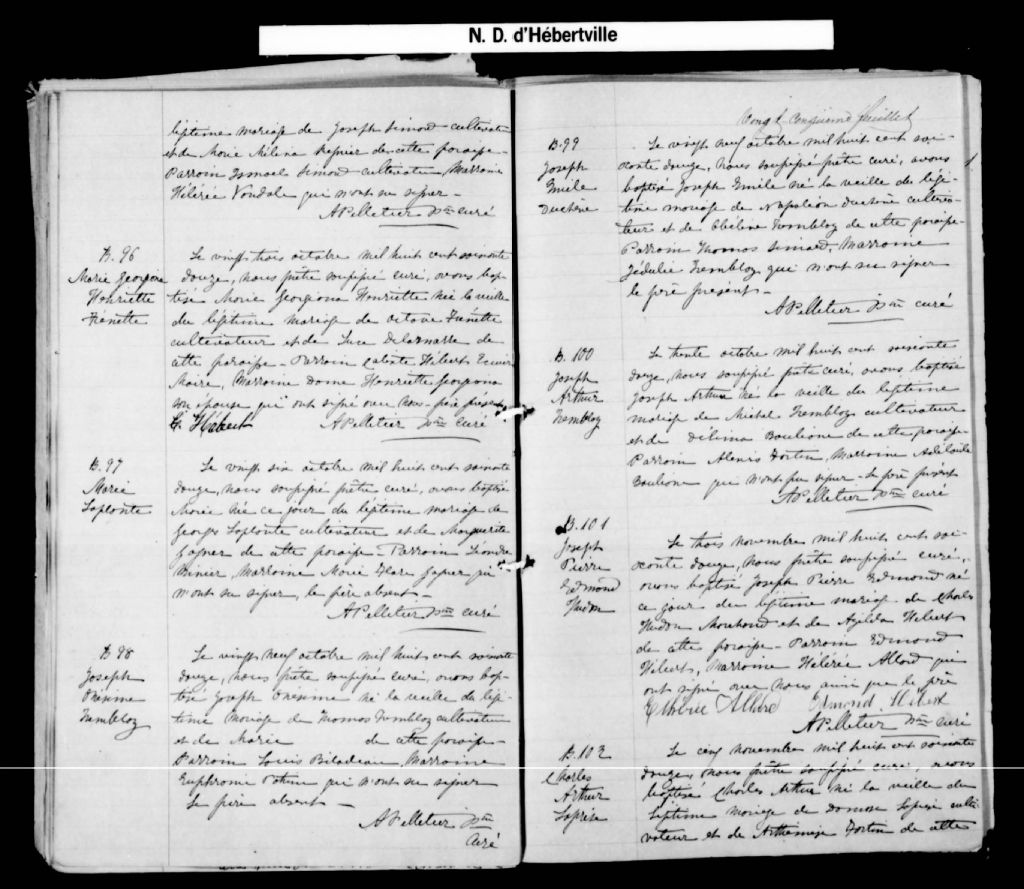 N. D. d'Hébertville
légitime mariage de Joseph Simard cultivateur
et de Marie Mélina de cette paroisse
Parrain Ismael Simard cultivateur, Marraine
Vandale qui n'ont su signer –
A Pelletier Ptre curé
B. 96
Marie Georgiana
Henriette
Frenette
Le vingt trois octobre mil huit cent soixante
douze, nous prêtre soussigné curé, avons bap-
tisé Marie Georgiana Henriette née la veille
du légitime mariage de Octave Frenette
cultivateur et de Luce de
cette paroisse – Parrain Calixte Hébert Ecuier
Maire, Marraine Dame Henriette Georgiana
son épouse qui ont signé avec nous – père présent
C. Hébert A Pelletier Ptre curé
B. 97
Marie
Laplante
Le vingt six octobre mil huit cent soixante
douze, nous soussigné prêtre curé, avons baptisé
Marie née ce jour du légitime mariage de
Georges Laplante cultivateur et de Marguerite
Gagner de cette paroisse – Parrain Léandre
Marraine Marie Gagner qui
n'ont su signer, le père absent –
A Pelletier Ptre curé
B 98
Joseph
Onésime
Tremblay
Le vingt neuf octobre mil huit cent soixante
douze, nous prêtre soussigné curé, avons bap-
tisé Joseph Onésime né la veille du légi-
time mariage de Thomas Tremblay cultivateur
et de Marie de cette paroisse –
Parrain Louis Bilodeau, Marraine
qui n'ont su signer
le père absent –
A Pelletier Ptre
Curé
Vingt cinquième feuillet
B. 99
Joseph
Emile
Duchène
Le vingt neuf octobre mil huit cent soi-
xante douze, nous soussigné prêtre curé, avons
baptisé Joseph Emile né la veille du légi-
time mariage de Napoléon Duchène cultiva-
teur et de Tremblay de cette paroisse –
Parrain Thomas Simard, Marraine
Zédulie Tremblay qui n'ont su signer
le père présent –
A Pelletier Ptre curé
B. 100
Joseph
Arthur
Tremblay
Le trente octobre mil huit cent soixante
douze, nous soussigné prêtre curé, avons baptisé
Joseph Arthur né la veille du légitime
mariage de Michel Tremblay cultivateur
et de Délima Boulione de cette paroisse
Parrain Alexis Fortin, Marraine Adélaïde
Boulione qui n'ont su signer – le père présent
A Pelletier Ptre curé
B. 101
Joseph
Pierre
Edmond
Hudon
Le trois novembre mil huit cent soi-
xante douze, nous prêtre soussigné curé,
avons baptisé Joseph Pierre Edmond né
ce jour du légitime mariage de Charles
Hudon Marchand et de Azilda Hébert
de cette paroisse – Parrain Edmond
Hébert, Marraine Allard qui
ont signé avec nous ainsi que le père
Edmond Hébert
A Pelletier Ptre curé
B. 102
Charles
Arthur
Laprise
Le cinq novembre mil huit cent soixante
douze, nous prêtre soussigné curé, avons
baptisé Charles Arthur né la veille du
légitime mariage de Damase Laprise culti-
vateur et de Arthémise Fortin de cette